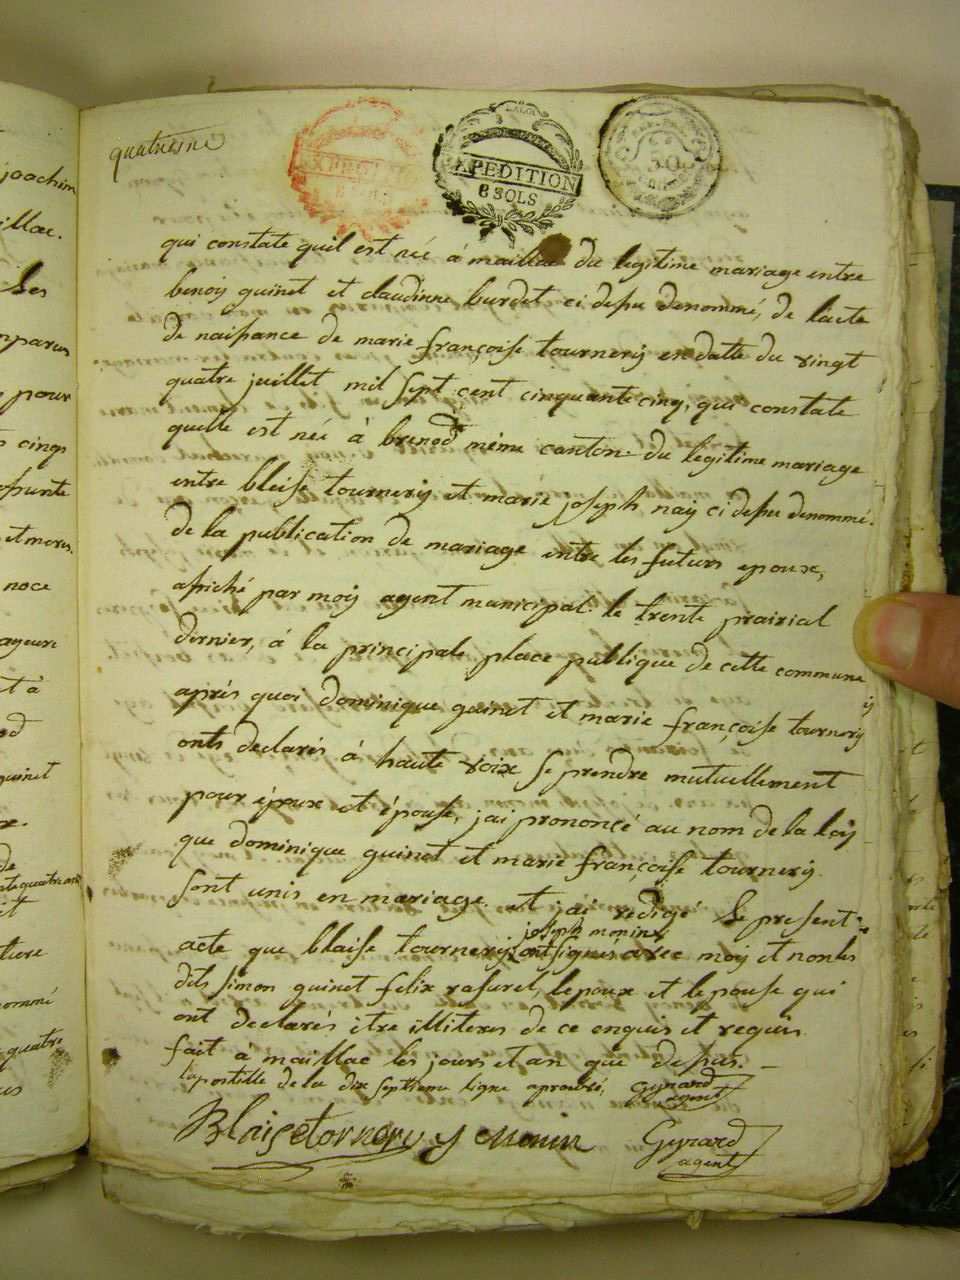 joachim
illac.
Les
mparus
pour
cinq
et meres.
noce
ageure
t à
od
quinet
de
it
ommé
quatre
quatriesme
LA LOI
EXPEDITION
8 SOLS
qui constate quil est née à maillac du legitime mariage entre
benoy guinet et claudinne burdet ci depu denommé, de lacte
de naissance de marie françoise tournery en datte du vingt
quatre juillet mil sept cent cinquante cinq, qui constate
quelle est née à brenod même canton du legitime mariage
entre bleise tournery et marie joseph nay ci depu denommé.
de la publication de mariage entre les futurs epoux,
afiché par moy agent municipal le trente prairial
dernier, à la principale place publique de cette commune
après quoi dominique guinet et marie françoise tournery
onts declarés à haute voix se prendre mutuellement
pour époux et épouse, jai prononcé au nom de la loy
que dominique guinet et marie françoise tournery
sont unis en mariage. et jai redigé le present
joseph monin
acte que blaise tournery ont signés avec moy et non les
dits simon guinet felix rafuret, lepoux et lepouse qui
ont declarés être illiteres de ce enquis et requis
fait à maillac les jours et an que depus.
lapostille de la dix septieme ligne aprouvée, Gynard
agent
Blaise tornery J Monin Gynard
agent